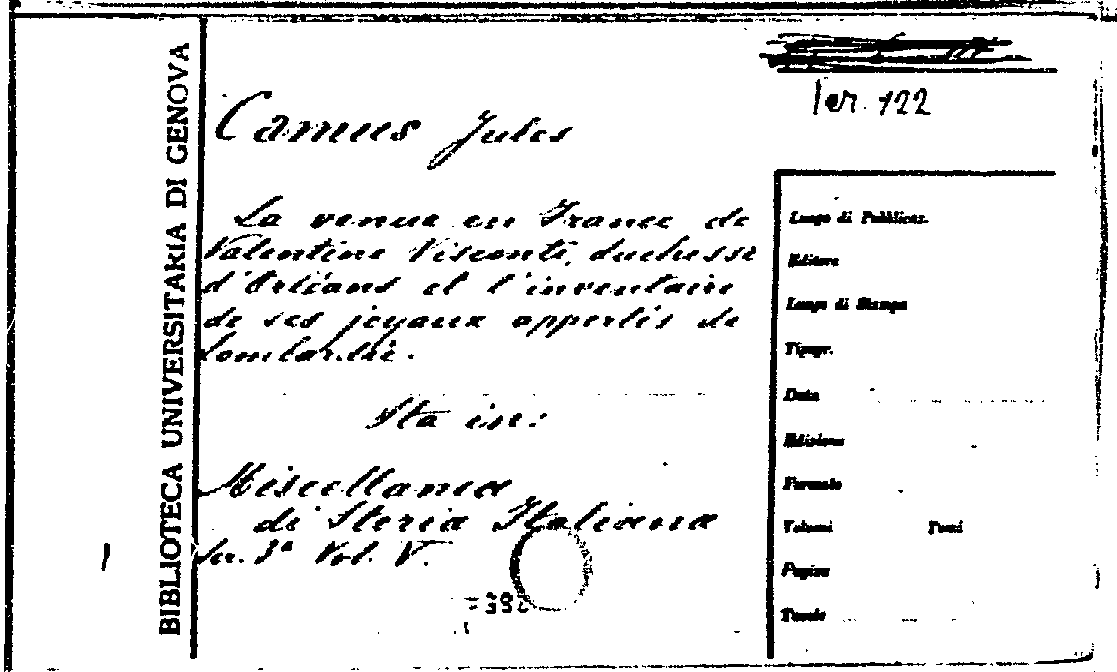 BIBLIOTECA UNIVERSITARIA DI GENOVA
Camus Jules
La venue en France de
Valentine Visconti, duchesse
d'Orléans et l'inventaire
de ses joyaux apportés de
Lombardie.
Sta in:
Miscellanea
di Storia Italiana
Ser. 3ª Vol. V.
Ser. 122
Luogo di Pubblicaz.
Editore
Luogo di Stampa
Tipogr.
Data
Edizione
Formato
Volumi Tomi
Pagine
Tavole